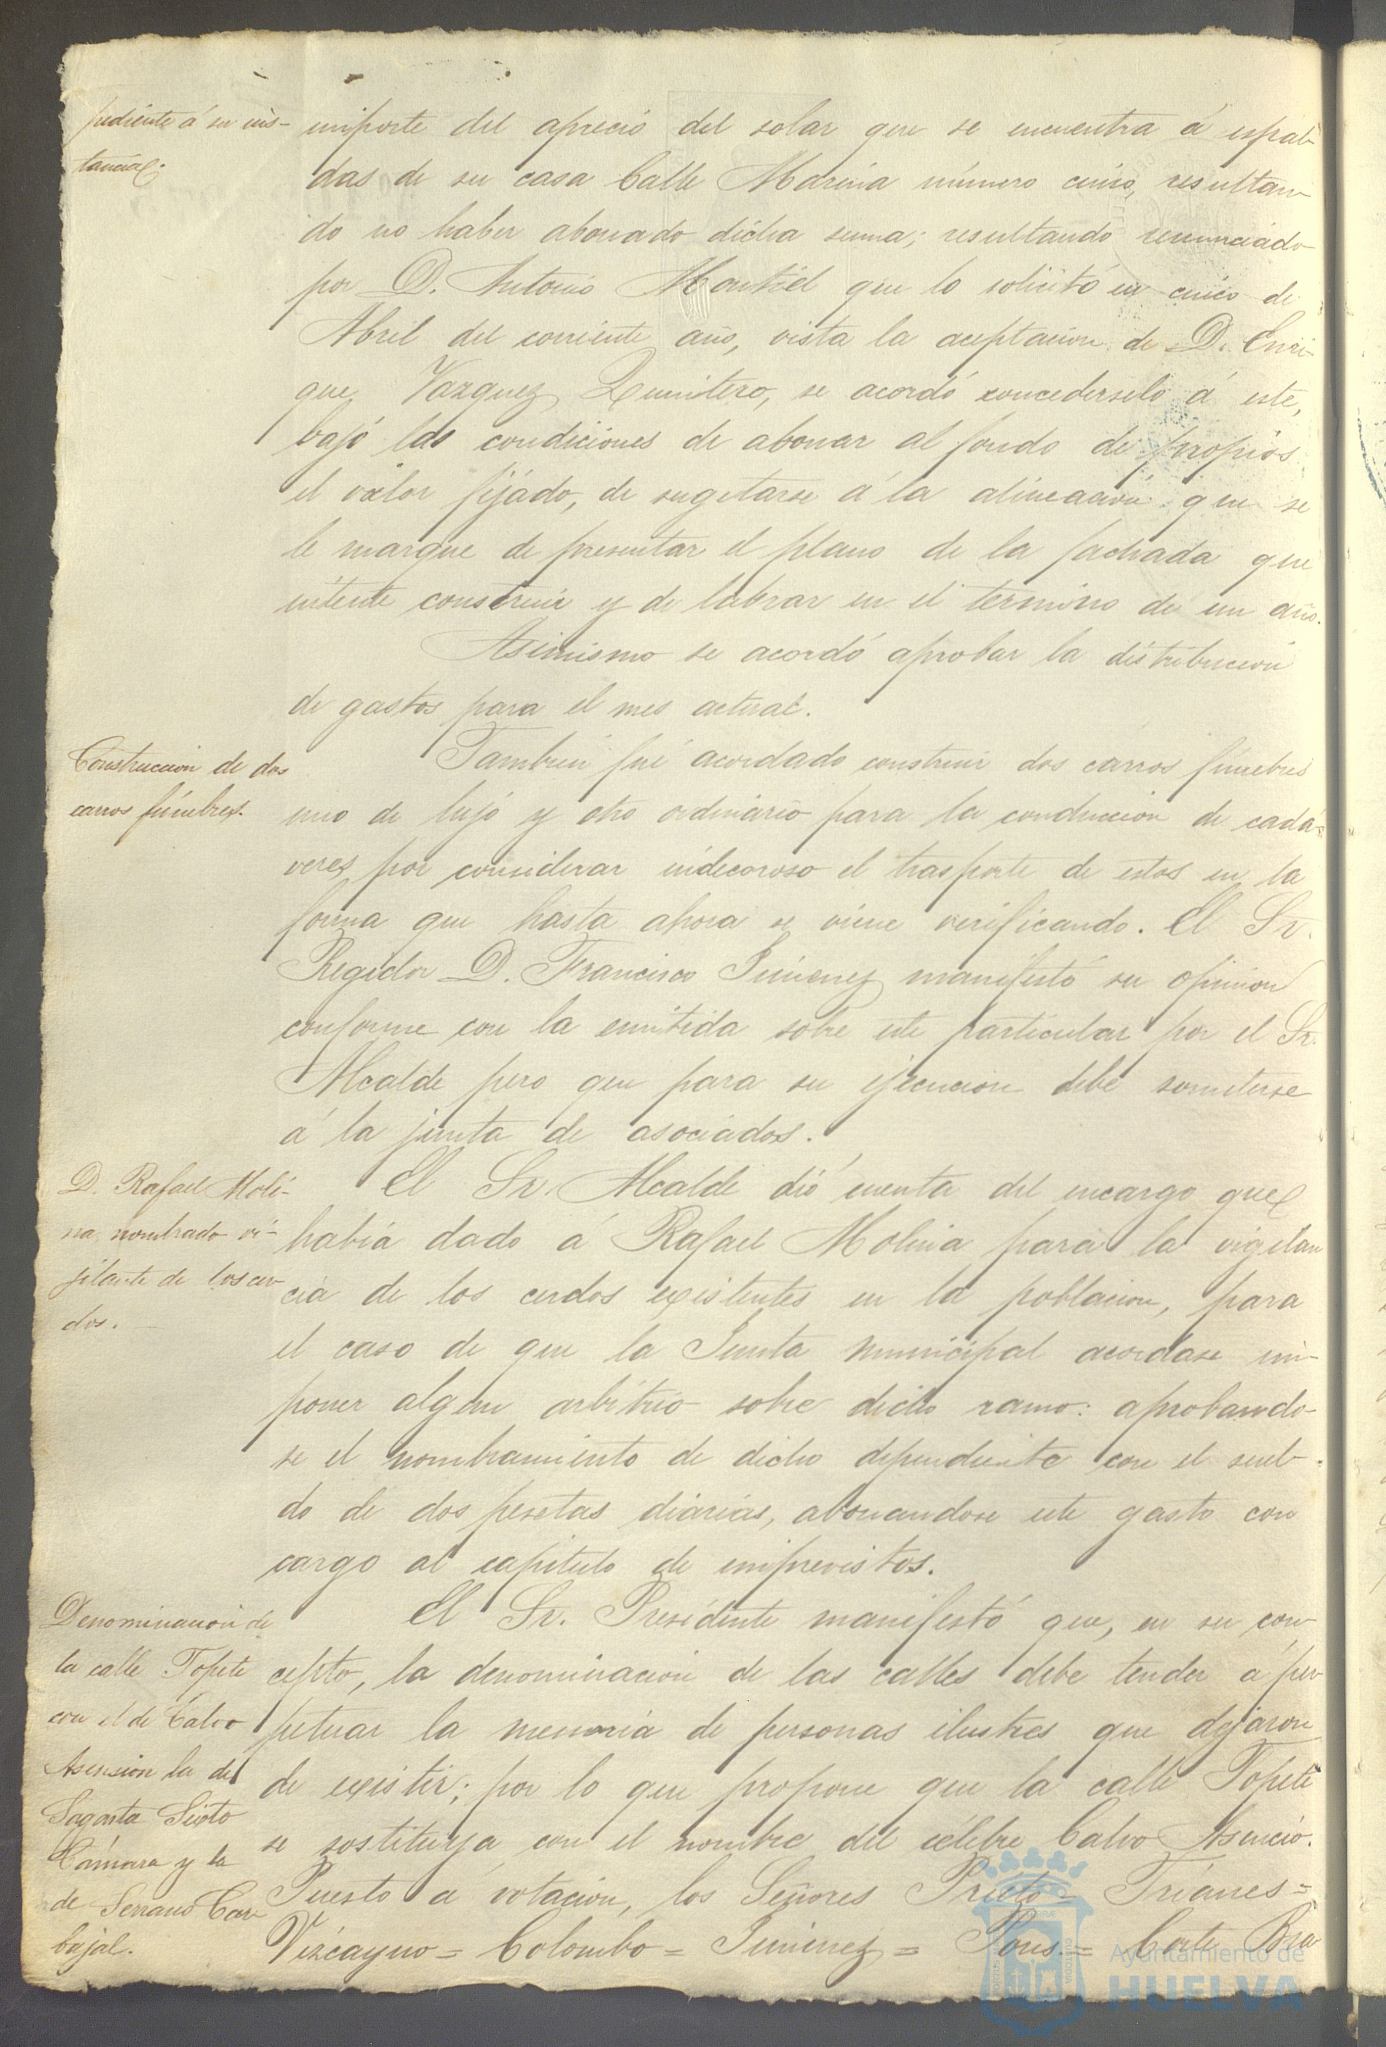 pediente á su ins-
tancia.
importe del aprecio del solar que se encuentra á espal-
das de su casa Calle Marina número cinco, resultan-
do no haber abonado dicha suma; resultando renunciado
por D. Antonio Montiel que lo solicitó en cinco de
Abril del corriente año, vista la aceptacion de D. Enri-
que Vazquez Quintero, se acordó concederselo á este,
bajo las condiciones de abonar al fondo de propios
el valor fijado, de sugetarse á la alineacion que se
le marque de presentar el plano de la fachada que
intente construir y de labrar en el termino de un año.
Asimismo se acordó aprobar la distribucion
de gastos para el mes actual.
Construccion de dos
carros fúnebres.
Tambien fué acordado construir dos carros fúnebres
uno de lujo y otro ordinario para la conduccion de cadá-
veres, por considerar indecoroso el trasporte de estos en la
forma que hasta ahora se viene verificando. El Sr.
Regidor D. Francisco Jimenez manifestó su opinion
conforme con la emitida sobre este particular por el Sr.
Alcalde pero que para su ejecucion debe someterse
á la junta de asociados.
D. Rafael Moli-
na nombrado vi-
jilante de los cer-
dos.
El Sr. Alcalde dió cuenta del encargo que
habia dado á Rafael Molina para la vigilan
cia de los cerdos existentes en la poblacion, para
el caso de que la Junta municipal acordase im-
poner algun arbitrio sobre dicho ramo: aprobando-
se el nombramiento de dicho dependiente con el suel-
do de dos pesetas diarias, abonandose este gasto con
cargo al capitulo de imprevistos.
Denominacion de
la calle Topete
con el de Calvo
Asension la de
Sagasta Sisto
Cámara y la
de Serrano Car
bajal.
El Sr. Presidente manifestó que, en su con
cepto, la denominacion de las calles debe tender á per
petuar la memoria de personas ilustres que dejaron
de existir; por lo que propone que la calle Topete
se sostituya con el nombre del célebre Calvo Asencio.
Puesto á votacion, los Señores Prieto = Trianes =
Vizcayno = Colombo = Jimenez = Pons = Corte Bra
Ayuntamiento de
HUELVA